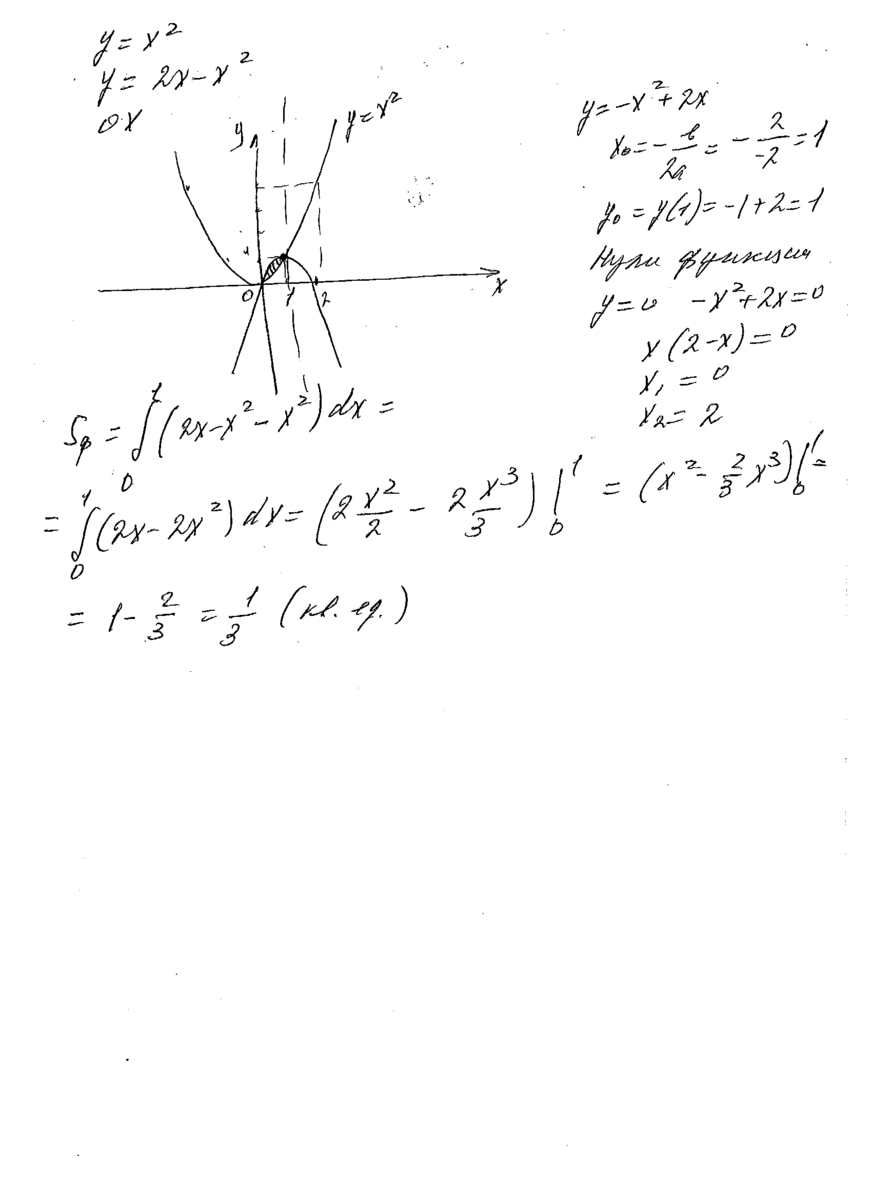 y = x²
y = 2x - x²
0x
y
y = x²
0
1
2
x
y = -x² + 2x
x₀ = -b/2a = -2/-2 = 1
y₀ = y(1) = -1 + 2 = 1
Нули функции
y = 0 -x² + 2x = 0
x(2 - x) = 0
x₁ = 0
x₂ = 2
Sф = ∫₀¹ (2x - x² - x²) dx =
= ∫₀¹ (2x - 2x²) dx = (2 x²/2 - 2 x³/3) |₀¹ = (x² - 2/3 x³) |₀¹ =
= 1 - 2/3 = 1/3 (кв. ед.)